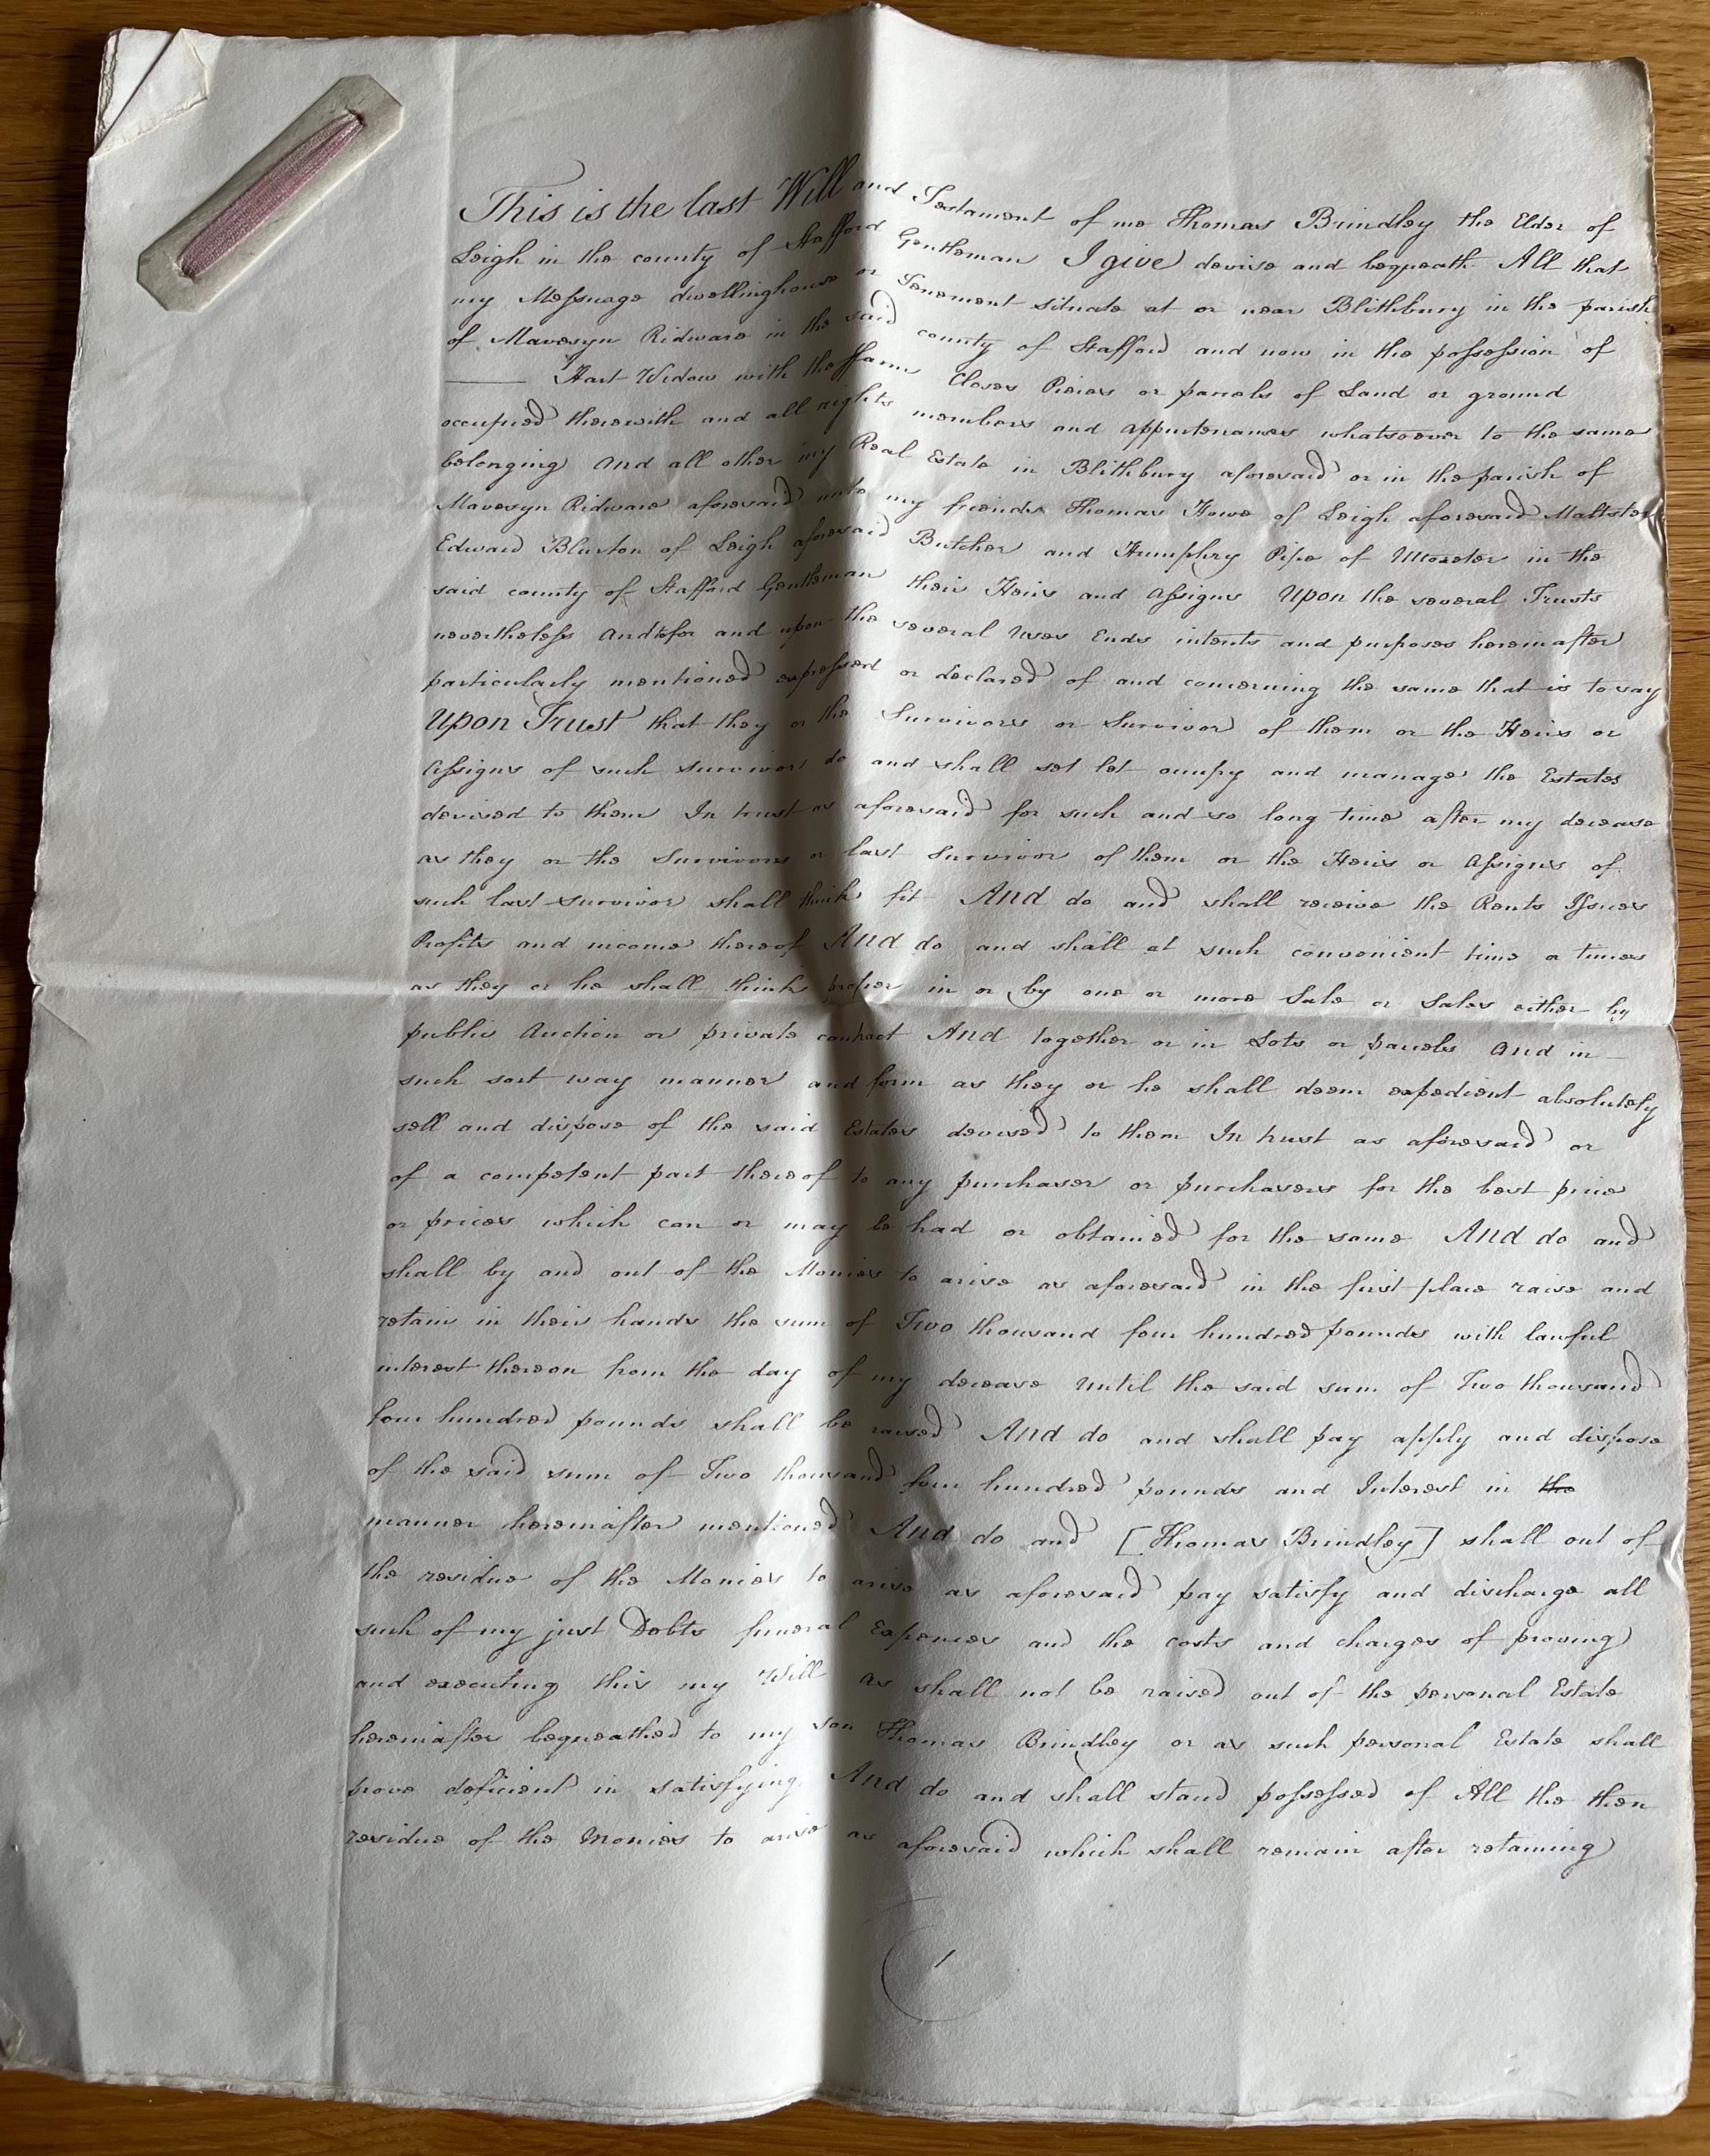 This is the last Will and Testament of me Thomas Brindley the Elder of
Leigh in the county of Stafford Gentleman I give devise and bequeath All that
my Messuage dwellinghouse or Tenement situate at or near Blithbury in the parish
of Mavesyn Ridware in the said county of Stafford and now in the possession of
——— Hart Widow with the ffarm Closes Pieces or parcels of Land or ground
occupied therewith and all rights members and appurtenances whatsoever to the same
belonging And all other my Real Estate in Blithbury aforesaid or in the parish of
Mavesyn Ridware aforesaid unto my friends Thomas Howe of Leigh aforesaid Maltster
Edward Blurton of Leigh aforesaid Butcher and Humphry Pipe of Uttoxeter in the
said county of Stafford Gentleman their Heirs and Assigns Upon the several Trusts
nevertheless And to for and upon the several Uses Ends intents and purposes hereinafter
particularly mentioned expressed or declared of and concerning the same that is to say
Upon Trust that they or the Survivors or Survivor of them or the Heirs or
Assigns of such survivor do and shall set let occupy and manage the Estates
devised to them In trust as aforesaid for such and so long time after my decease
as they or the Survivors or last Survivor of them or the Heirs or Assigns of
such last survivor shall think fit And do and shall receive the Rents Issues
Profits and income thereof And do and shall at such convenient time or times
as they or he shall think proper in or by one or more Sale or Sales either by
public Auction or private contract And together or in Lots or parcels And in
such sort way manner and form as they or he shall deem expedient absolutely
sell and dispose of the said Estates devised to them In trust as aforesaid or
of a competent part thereof to any purchaser or purchasers for the best price
or prices which can or may be had or obtained for the same And do and
shall by and out of the Monies to arise as aforesaid in the first place raise and
retain in their hands the sum of Two thousand four hundred pounds with lawful
interest thereon from the day of my decease until the said sum of Two thousand
four hundred pounds shall be raised And do and shall pay apply and dispose
of the said sum of Two thousand four hundred pounds and Interest in the
manner hereinafter mentioned And do and [Thomas Brindley] shall out of
the residue of the Monies to arise as aforesaid pay satisfy and discharge all
such of my just Debts funeral Expences and the costs and charges of proving
and executing this my Will as shall not be raised out of the personal Estate
hereinafter bequeathed to my son Thomas Brindley or as such personal Estate shall
prove deficient in satisfying And do and shall stand possessed of All the then
residue of the Monies to arise as aforesaid which shall remain after retaining
1